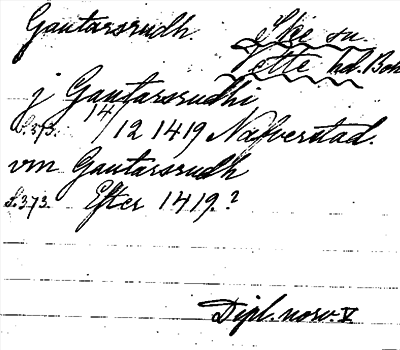 Gautarsrudh Skee sn
Vette hd. Boh
j Gautarsrudhi
S.373. 14/12 1419 Nafverstad.
vm Gautarsrudh
S.373. Efter 1419.?
Dipl. norv. V